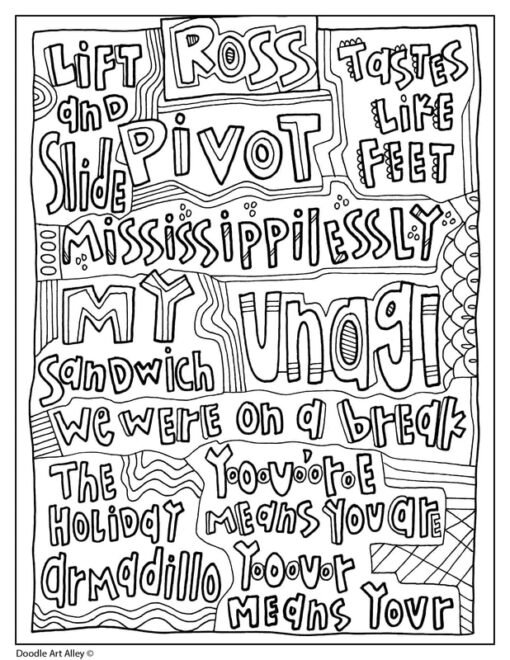 Ross
Lift
and
Slide
Pivot
Tastes
Like
Feet
Mississippilessly
My
Sandwich
Unagi
we were on a break
The
Holiday
Armadillo
Y-o-o-u-'-r-e
Means You are
Y-o-o-u-r
Means Your
Doodle Art Alley ©